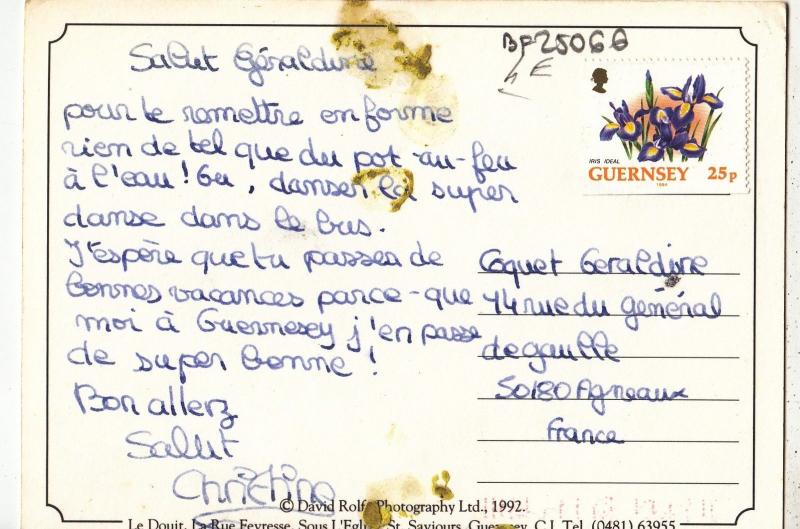 Salut Géraldine
pour te remettre en forme
rien de tel que du pot-au-feu
à l'eau! Ou, danser la super
danse dans le bus.
J'espère que tu passes de
bonnes vacances parce-que
moi à Guernesey j'en passe
de super bonne!
Bon allerz
Salut
Christine
BF25068
IRIS IDEAL
GUERNSEY 25p
1994
Coquet Geraldine
44 rue du général
de gaulle
50180 Agneaux
France
© David Rolfe Photography Ltd., 1992.
Le Douit, La Rue Feyresse, Sous L'Eglise, St. Saviours, Guernsey, C.I. Tel. (0481) 63955